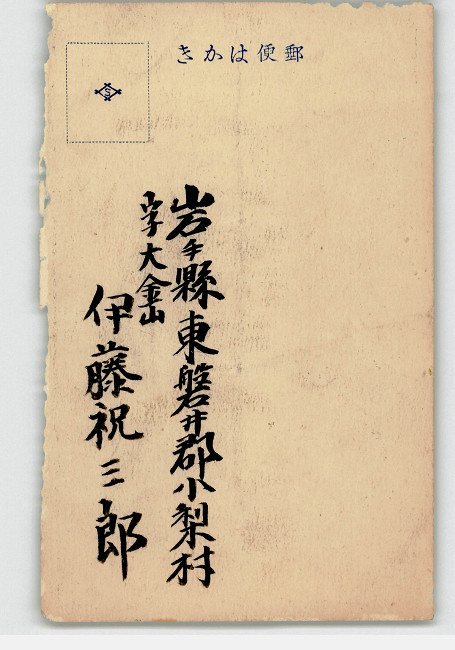 郵便はかき
S
岩手縣東磐井郡小梨村
字大金山
伊藤祝三郎